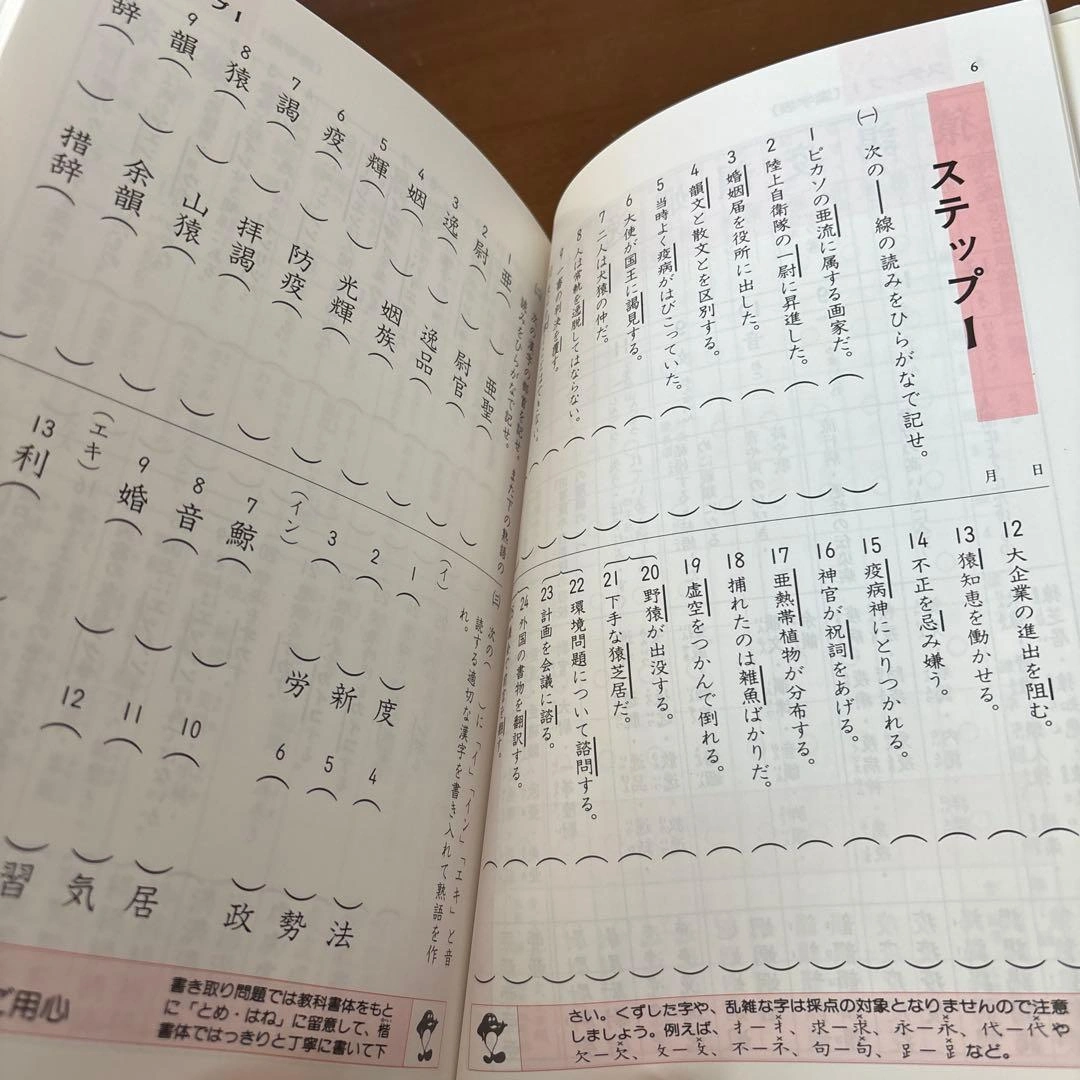 6
ステップ1
月 日
㈠ 次の━━線の読みをひらがなで記せ。
1 ピカソの亜流に属する画家だ。( )
2 陸上自衛隊の一尉に昇進した。( )
3 婚姻届を役所に出した。( )
4 韻文と散文とを区別する。( )
5 当時よく疫病がはびこっていた。( )
6 大使が国王に謁見する。( )
7 二人は犬猿の仲だ。( )
8 人は常軌を逸脱してはならない。( )
12 大企業の進出を阻む。( )
13 猿知恵を働かせる。( )
14 不正を忌み嫌う。( )
15 疫病神にとりつかれる。( )
16 神官が祝詞をあげる。( )
17 亜熱帯植物が分布する。( )
18 捕れたのは雑魚ばかりだ。( )
19 虚空をつかんで倒れる。( )
20 野猿が出没する。( )
21 下手な猿芝居だ。( )
22 環境問題について諮問する。( )
23 計画を会議に諮る。( )
24 外国の書物を翻訳する。( )
さい。くずした字や、乱雑な字は採点の対象となりませんので注意
しましょう。例えば、扌─扌、求─求、永─永、代─代や
欠─欠、攵─攵、不─不、句─句、𧾷─𧾷 など。
読みをひらがなで記せ。また下の熟語の
1 亜( ) 亜聖( )
2 尉( ) 尉官( )
3 逸( ) 逸品( )
4 姻( ) 姻族( )
5 輝( ) 光輝( )
6 疫( ) 防疫( )
7 謁( ) 拝謁( )
8 猿( ) 山猿( )
9 韻( ) 余韻( )
辞( ) 措辞( )
㈢ 次の( )に「イ」「イン」「エキ」と音
読する適切な漢字を書き入れて熟語を作
れ。
(イ)
1 ( )度
2 ( )新
3 ( )労
4 ( )法
5 ( )勢
6 ( )政
(イン)
7 鯨( )
8 音( )
9 婚( )
10 ( )居
11 ( )気
12 ( )習
(エキ)
13 利(
書き取り問題では教科書体をもと
に「とめ・はね」に留意して、楷
書体ではっきりと丁寧に書いて下
ご用心